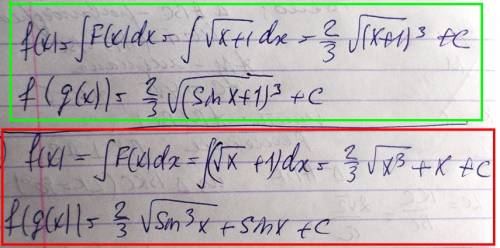 f(x) = ∫F(x)dx = ∫√(x+1) dx = 2/3 √(x+1)³ + C
f(g(x)) = 2/3 √(Sinx+1)³ + C
) f(x) = ∫F(x)dx = ∫(√x + 1)dx = 2/3 √x³ + x + C
f(g(x)) = 2/3 √Sin³x + Sinx + C